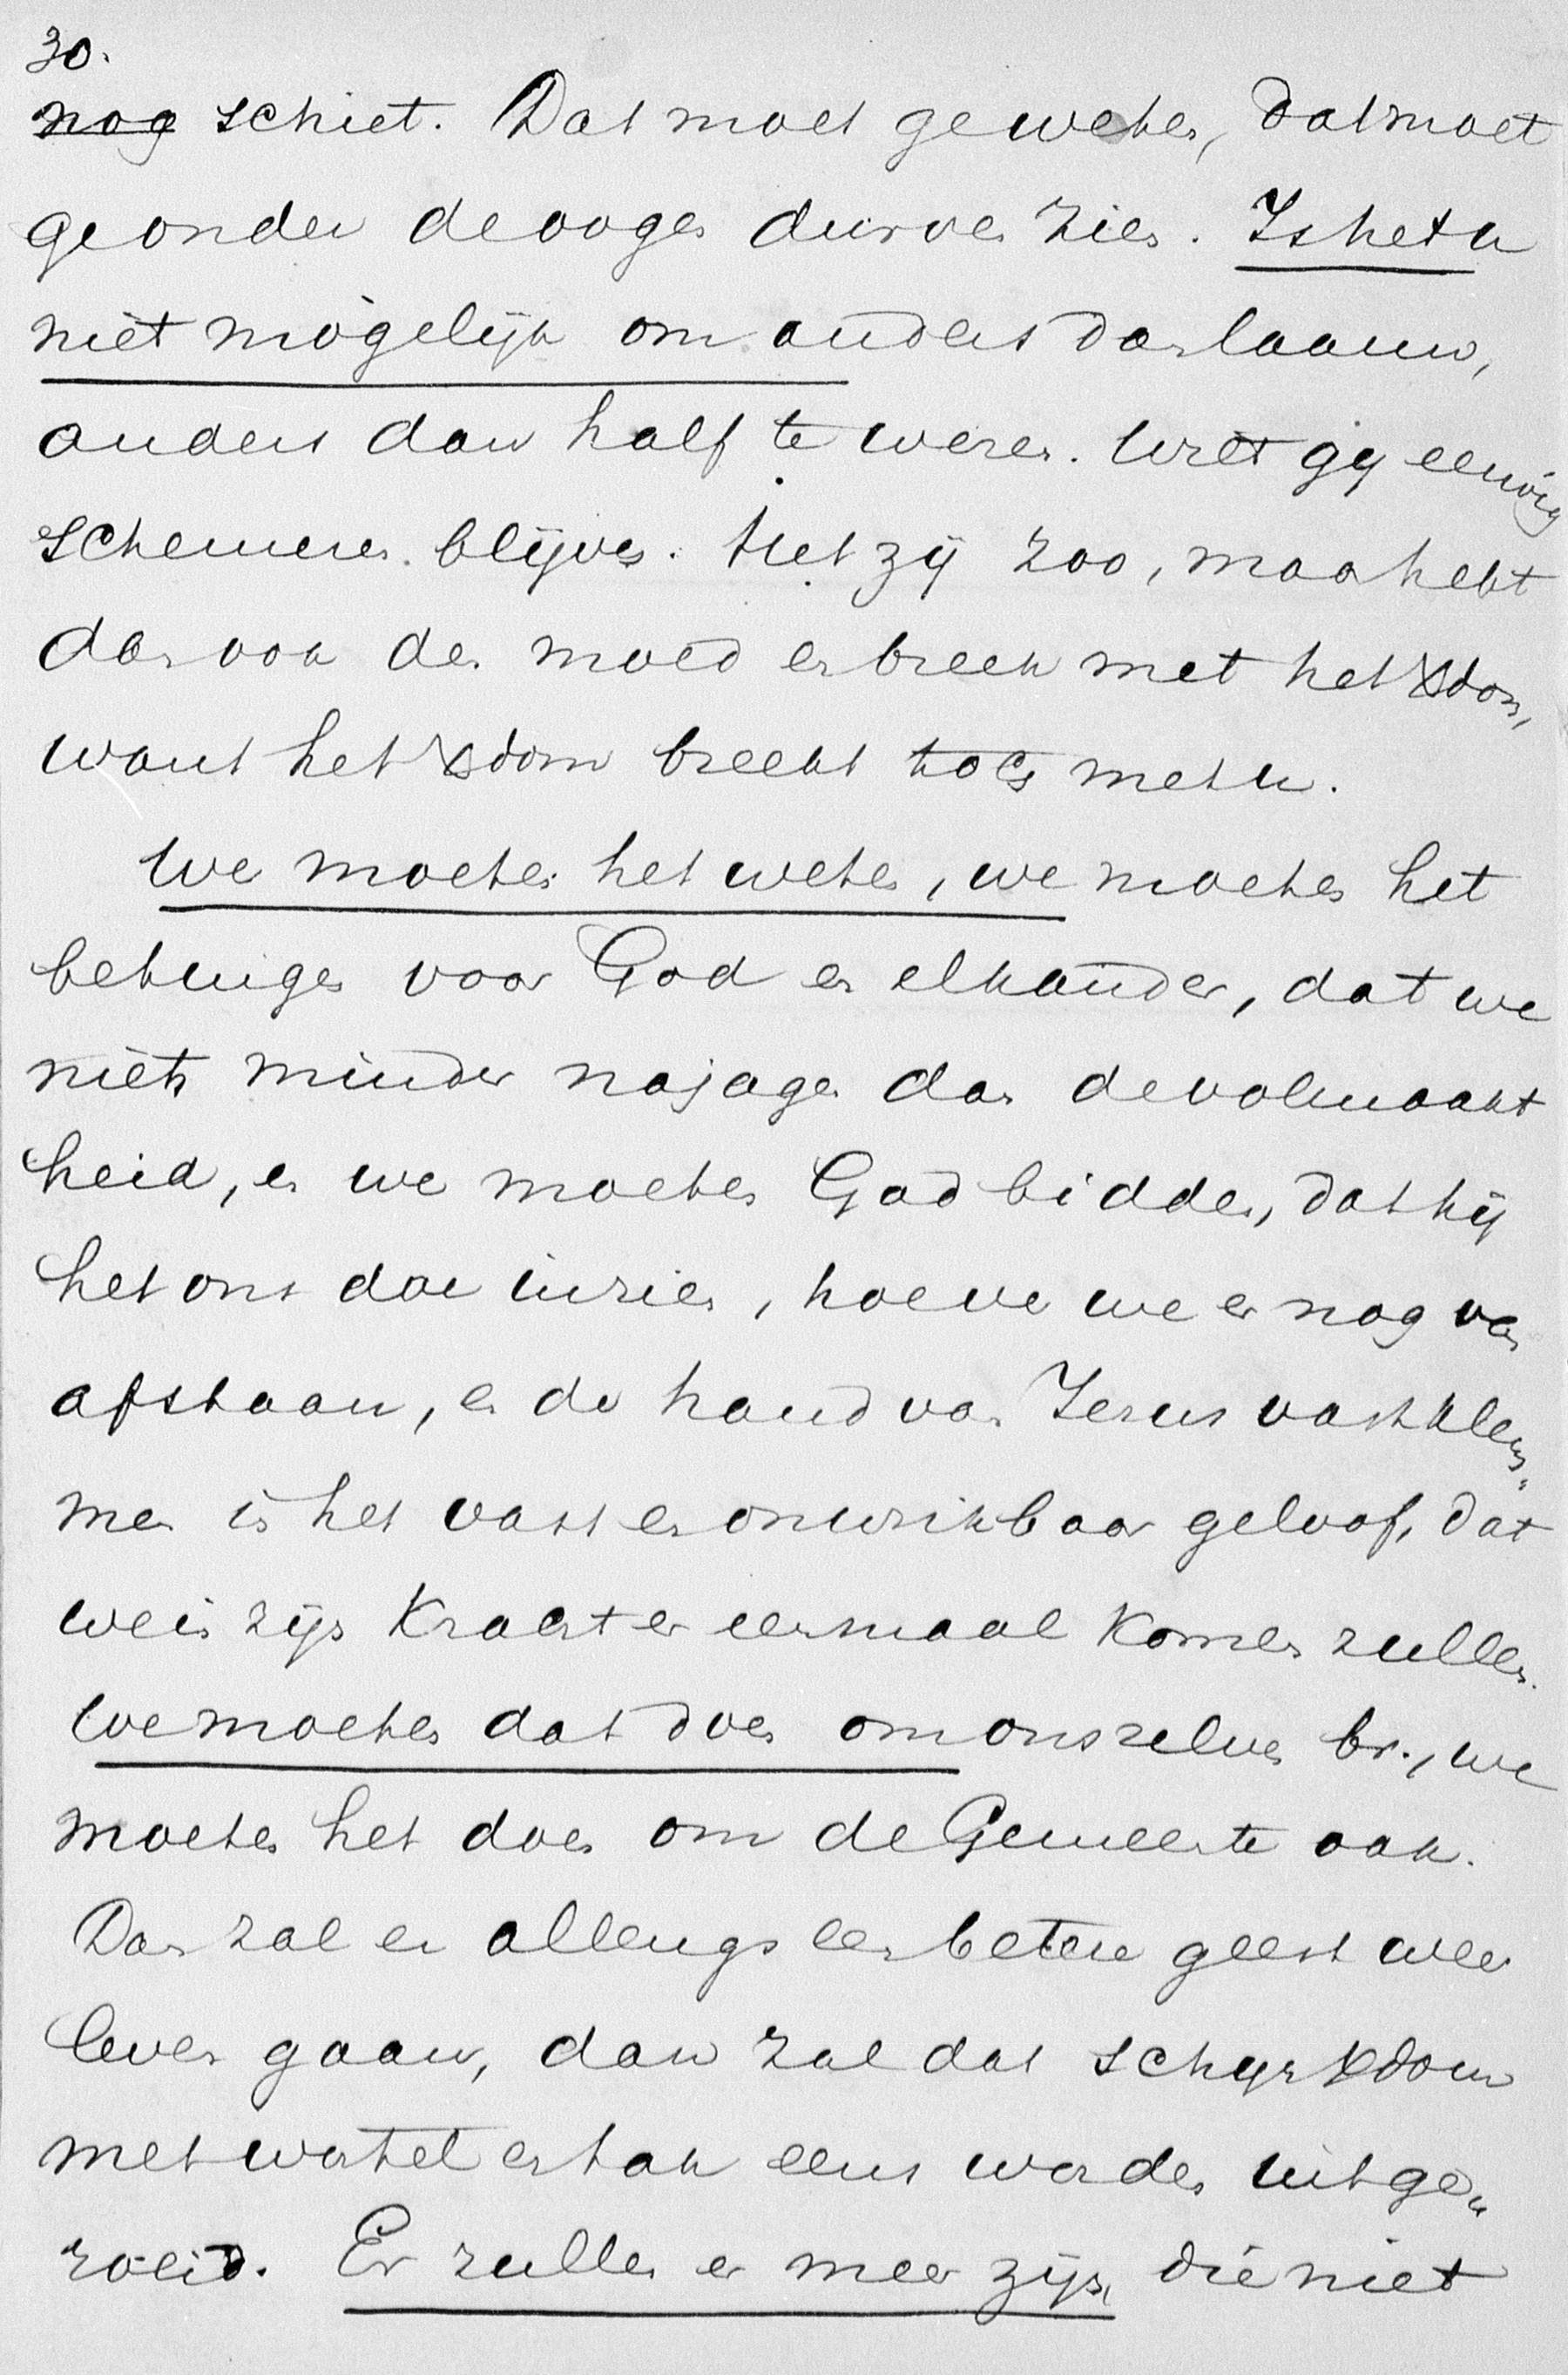 30.
nog schiet. Dat moet ge weten, dat moet
ge onder de oogen durven zien. Is het u
niet mogelijk om anders dan laauw,
anders dan half te wezen. Wilt gij eeuwig
schemeren blijven. Het zij zoo, maar hebt
dan ook den moed en breek met het Xdom,
want het Xdom breekt toch met u.
We moeten het weten, we moeten het
betuigen voor God en elkander, dat we
niets minder najagen dan de volmaakt
heid, en we moeten God bidden, dat hij
het ons doe inzien, hoeve we er nog van
afstaan, en de hand van Jezus vastklem„
men in het vast en onwrikbaar geloof, dat
we in zijn kracht er eenmaal komen zullen.
We moeten dat doen om onszelven br., we
moeten het doen om de Gemeente ook.
Dan zal er allengs een betere geest weer
leven gaan, dan zal dat schijnXdom
met wortel en tak eens worden uitge„
roeid. Er zullen er meer zijn, die niet